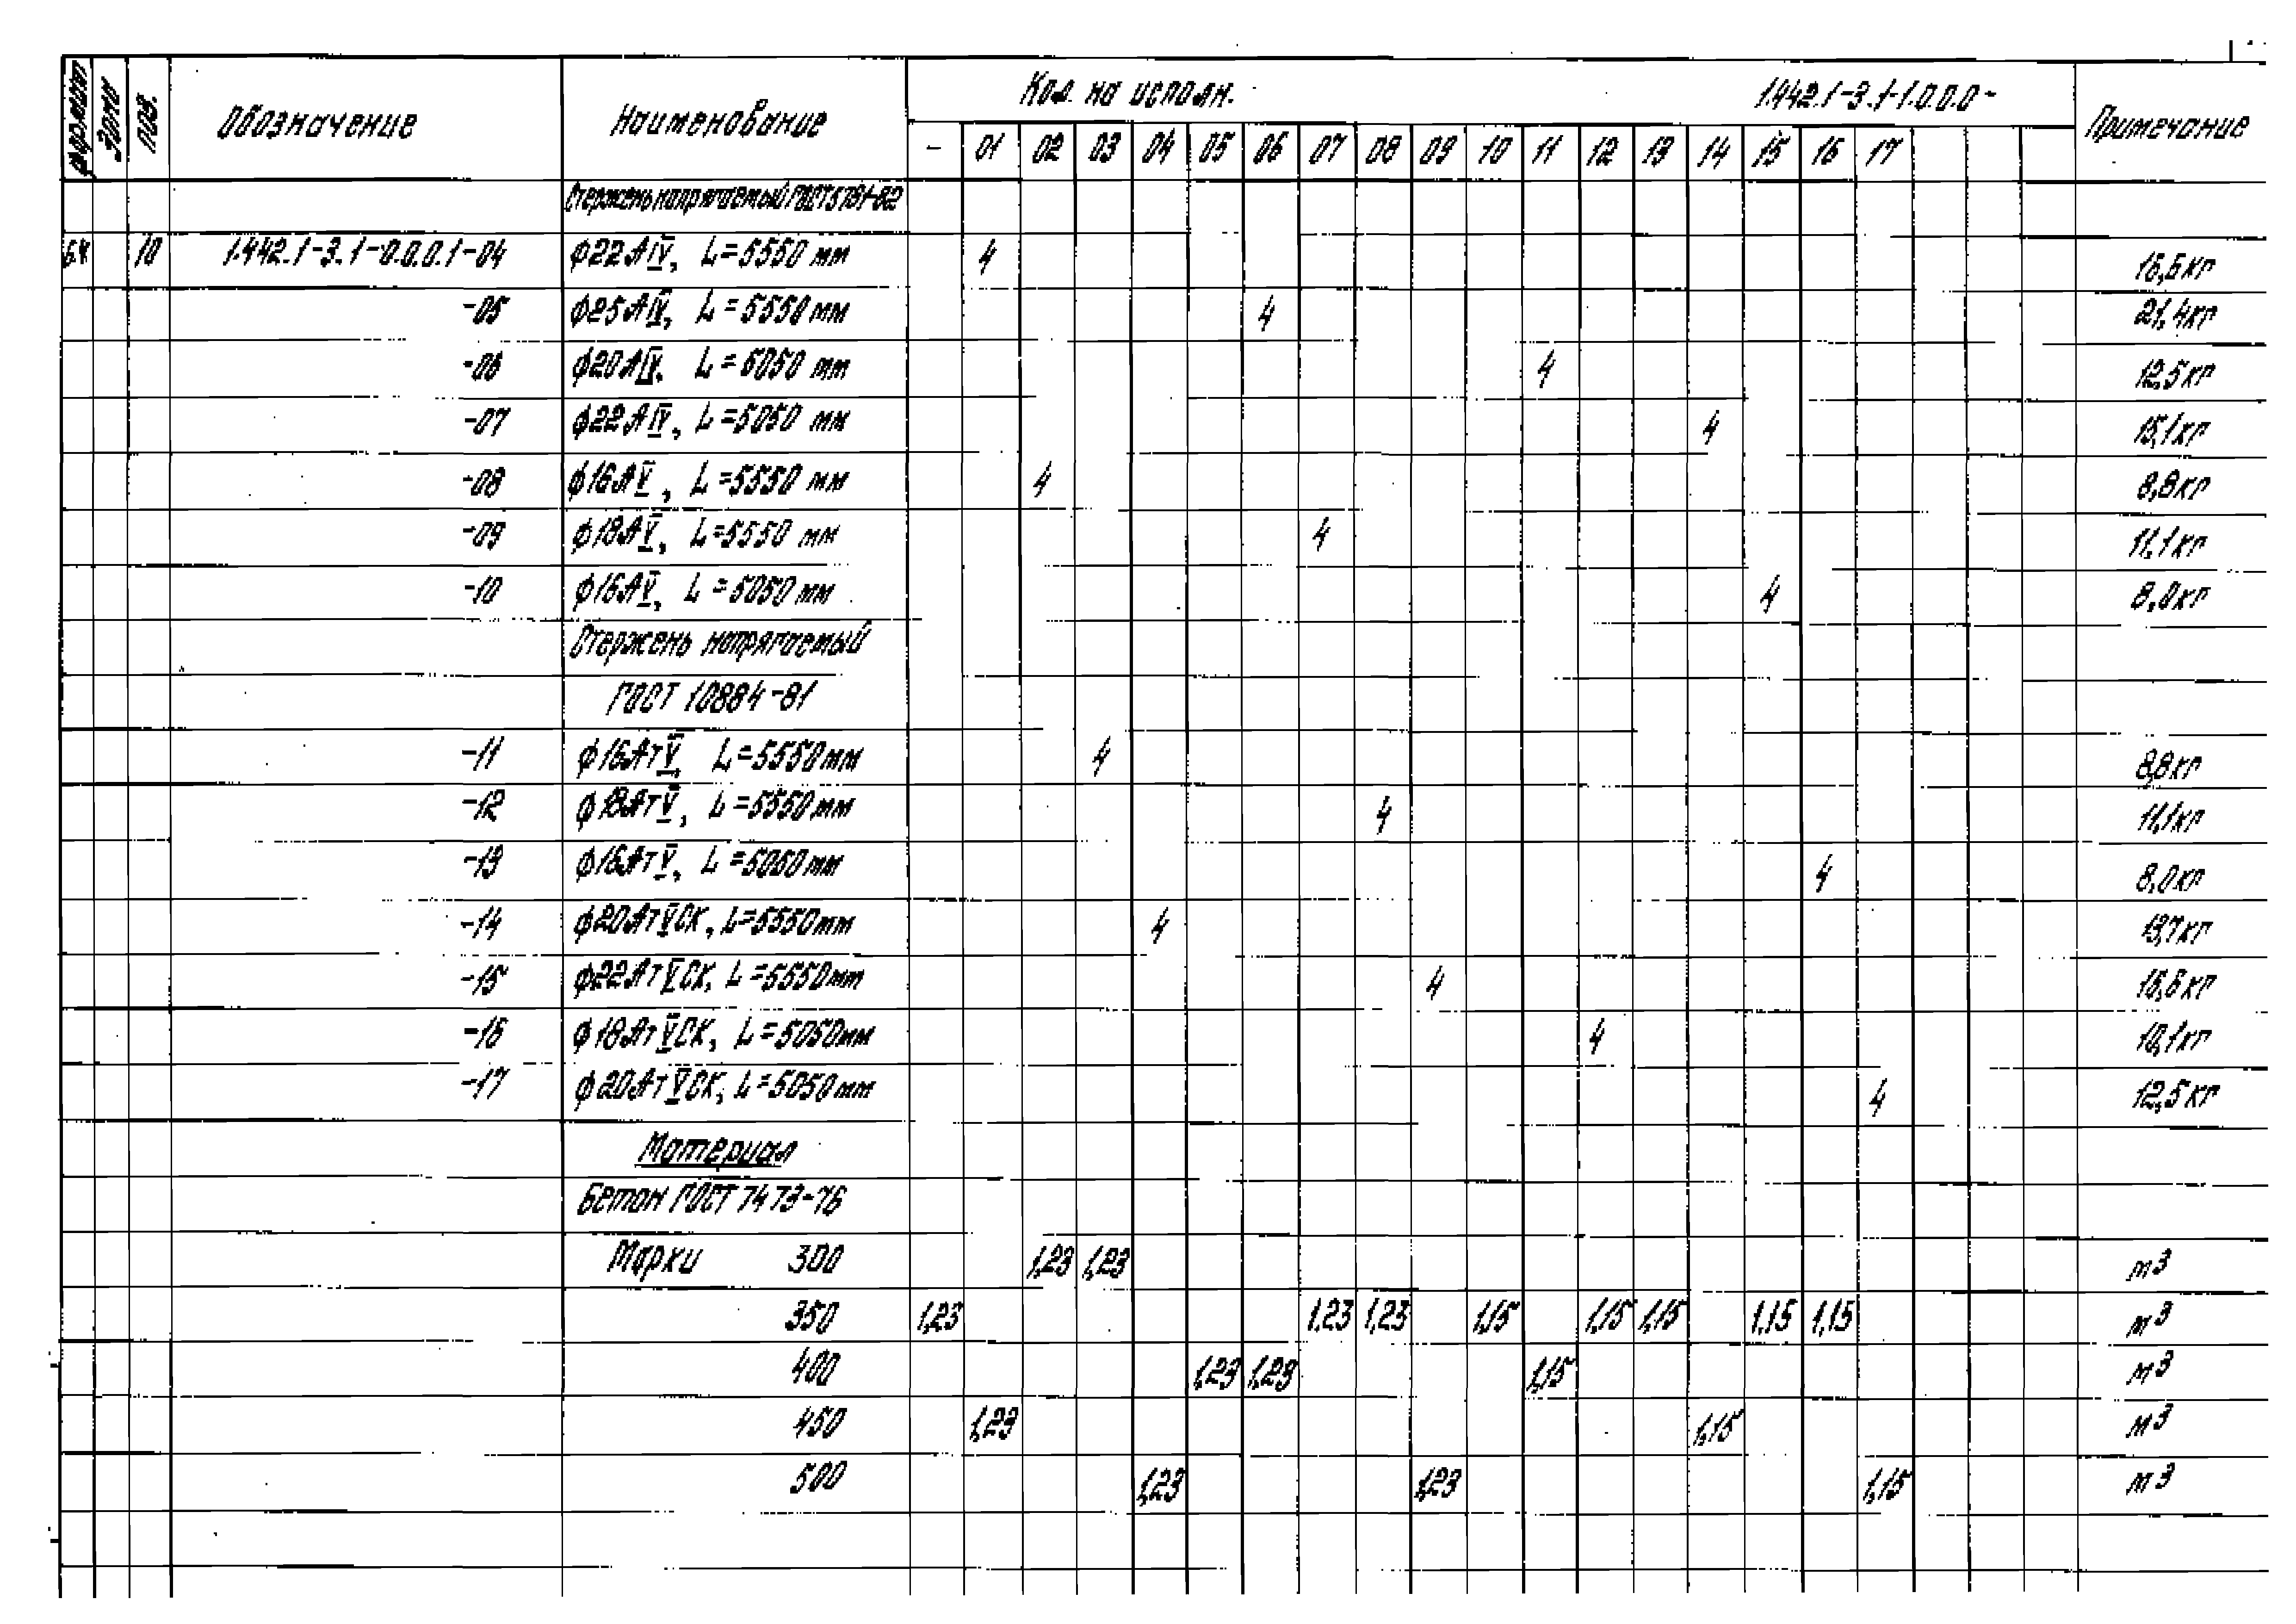 формат Зона поз. Обозначение Наименование Кол. на исполн. 1.442.1-3.1-1.0.0.0- Примечание
- 01 02 03 04 05 06 07 08 09 10 11 12 13 14 15 16 17
Стержень напрягаемый ГОСТ 5781-82
БЧ 10 1.442.1-3.1-0.0.0.1-04 ф22АIV, L=5550 мм 4 16,6кг
-05 ф25АIV, L=5550 мм 4 21,4кг
-06 ф20АIV, L=5050 мм 4 12,5кг
-07 ф22АIV, L=5050 мм 4 15,1кг
-08 ф16АV, L=5550 мм 4 8,8кг
-09 ф18АV, L=5550 мм 4 11,1кг
-10 ф16АV, L=5050 мм 4 8,0кг
Стержень напрягаемый
ГОСТ 10884-81
-11 ф16АтV, L=5550мм 4 8,8кг
-12 ф18АтV, L=5550мм 4 11,1кг
-13 ф16АтV, L=5050мм 4 8,0кг
-14 ф20АтVСК, L=5550мм 4 13,7кг
-15 ф22АтVСК, L=5550мм 4 16,6кг
-16 ф18АтVСК, L=5050мм 4 10,1кг
-17 ф20АтVСК, L=5050мм 4 12,5кг
Материал
Бетон ГОСТ 7473-76
Марки 300 1,23 1,23 м3
350 1,23 1,23 1,23 1,15 1,15 1,15 1,15 1,15 м3
400 1,23 1,23 1,15 м3
450 1,23 1,15 м3
500 1,23 1,23 1,15 м3